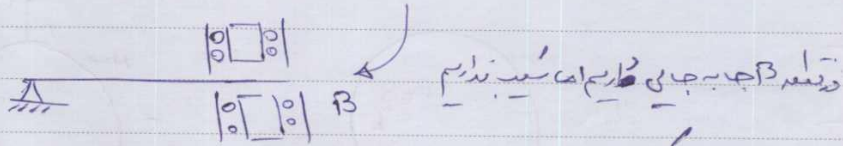 در نقطه B جابه جایی داریم اما شیب نداریم
B